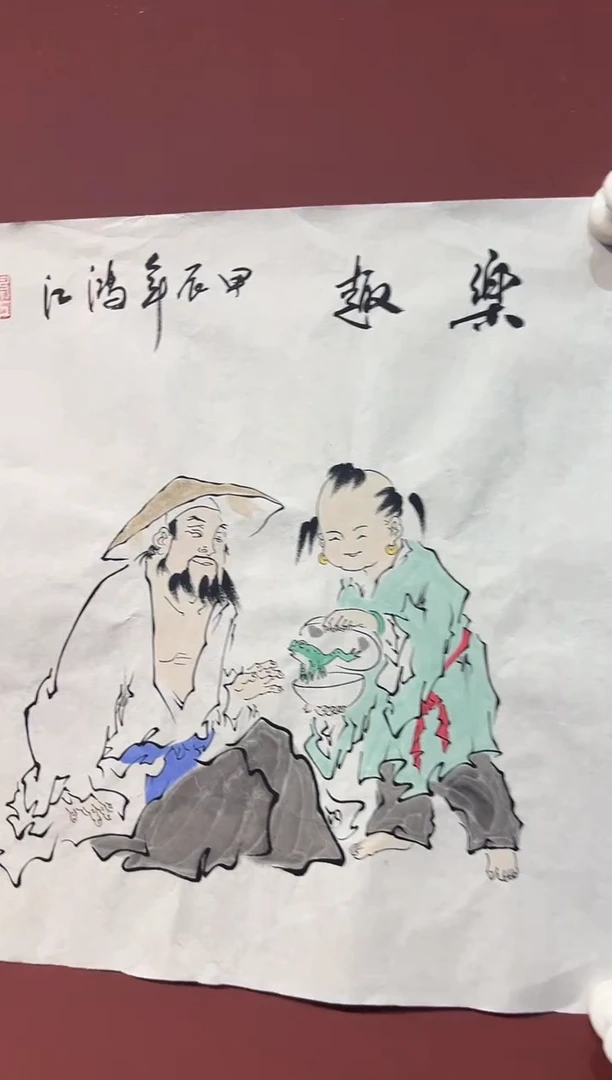 樂趣
甲辰年鴻江